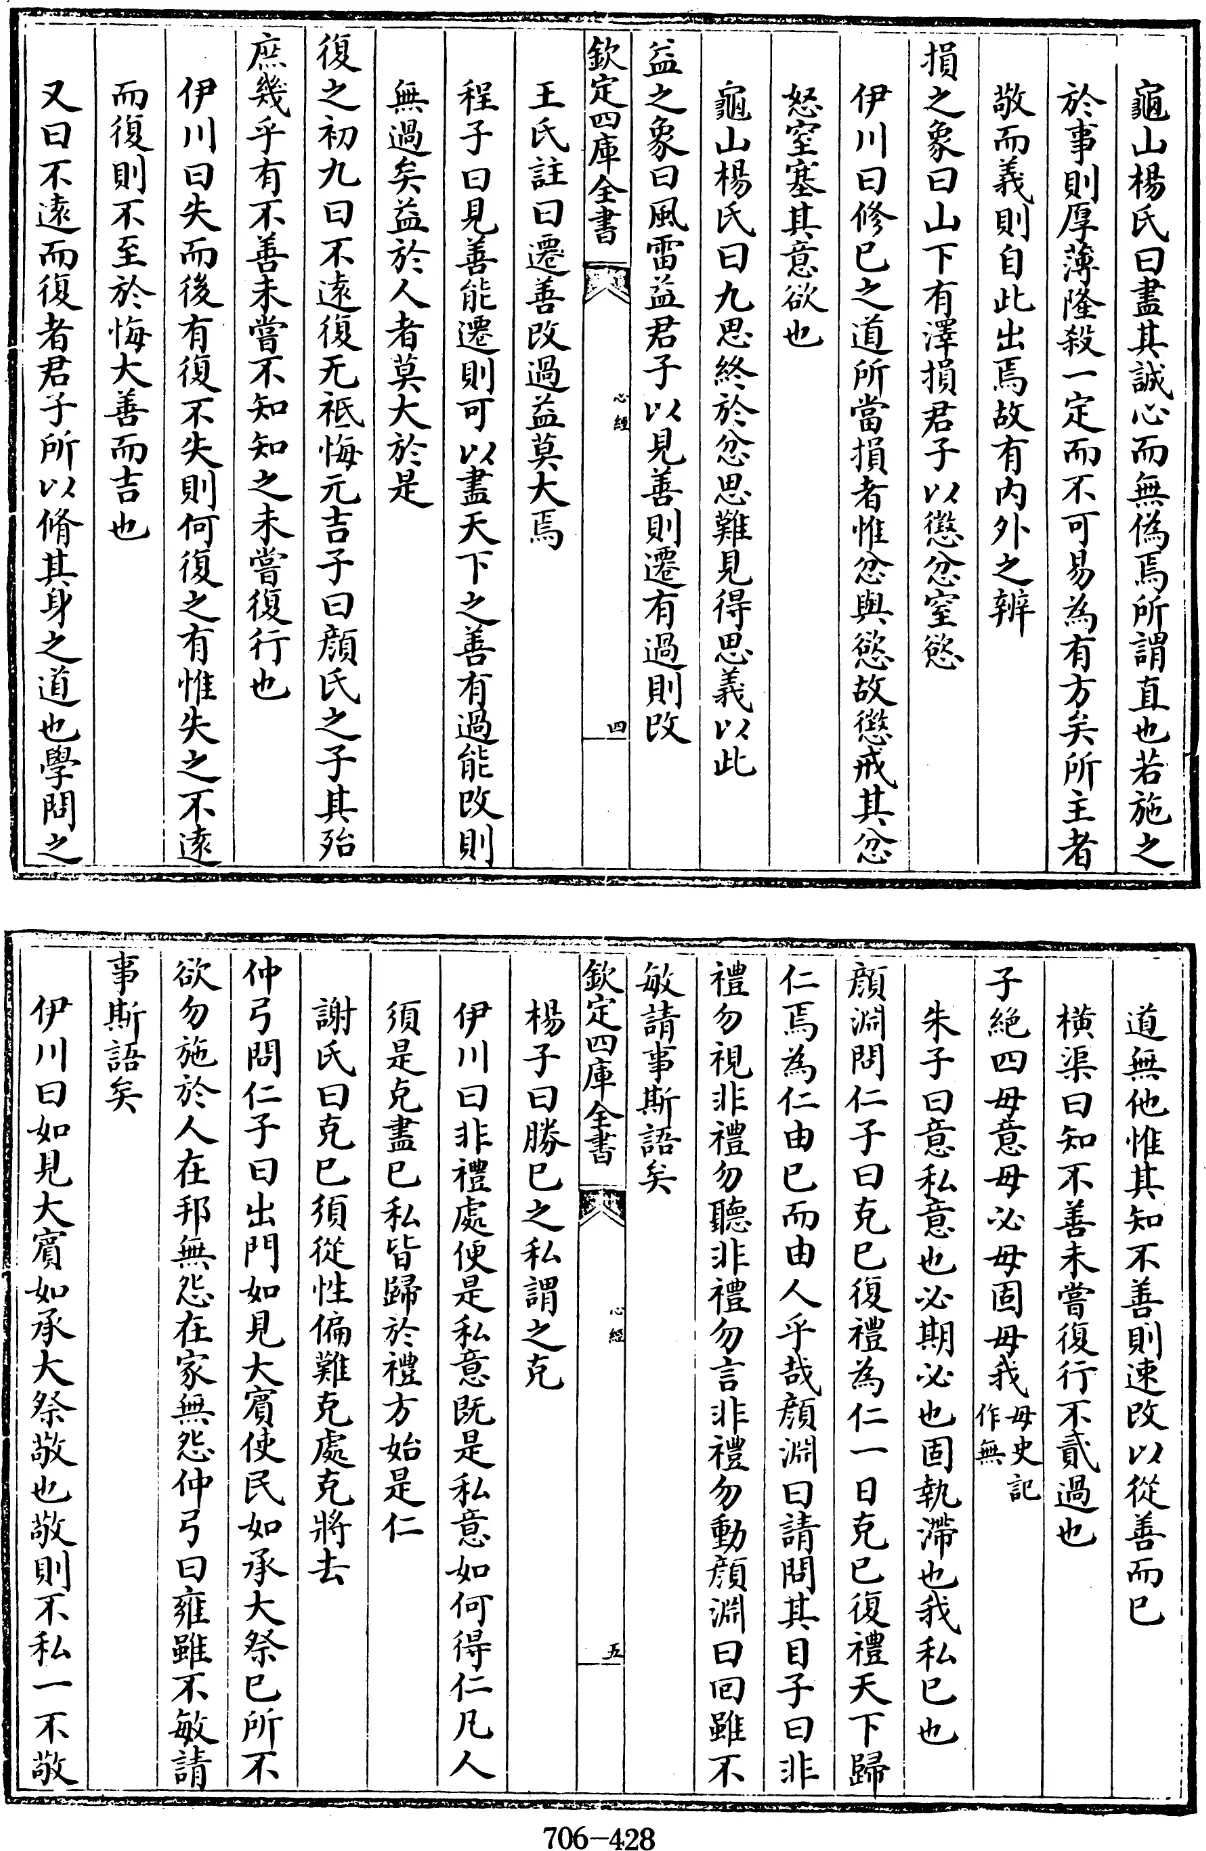 龜山楊氏曰盡其誠心而無偽焉所謂直也若施之
於事則厚薄隆殺一定而不可易為有方矣所主者
敬而義則自此出焉故有内外之辨
損之象曰山下有澤損君子以懲忿窒慾
伊川曰修已之道所當損者惟忿與慾故懲戒其忿
怒窒塞其意欲也
龜山楊氏曰九思終於忿思難見得思義以此
益之象曰風雷益君子以見善則遷有過則改
欽定四庫全書
心經
四
王氏註曰遷善改過益莫大焉
程子曰見善能遷則可以盡天下之善有過能改則
無過矣益於人者莫大於是
復之初九曰不逺復无祗悔元吉子曰顔氏之子其殆
庶幾乎有不善未嘗不知知之未嘗復行也
伊川曰失而後有復不失則何復之有惟失之不逺
而復則不至於悔大善而吉也
又曰不逺而復者君子所以脩其身之道也學問之
道無他惟其知不善則速改以從善而已
横渠曰知不善未嘗復行不貳過也
子絶四毋意毋必毋固毋我毋史記作無
朱子曰意私意也必期必也固執滯也我私已也
顔淵問仁子曰克已復禮為仁一日克已復禮天下歸
仁焉為仁由已而由人乎哉顔淵曰請問其目子曰非
禮勿視非禮勿聽非禮勿言非禮勿動顔淵曰回雖不
敏請事斯語矣
欽定四庫全書
心經
五
楊子曰勝已之私謂之克
伊川曰非禮處便是私意既是私意如何得仁凡人
須是克盡已私皆歸於禮方始是仁
謝氏曰克已須從性偏難克處克將去
仲弓問仁子曰出門如見大賓使民如承大祭已所不
欲勿施於人在邦無怨在家無怨仲弓曰雍雖不敏請
事斯語矣
伊川曰如見大賓如承大祭敬也敬則不私一不敬
706-428